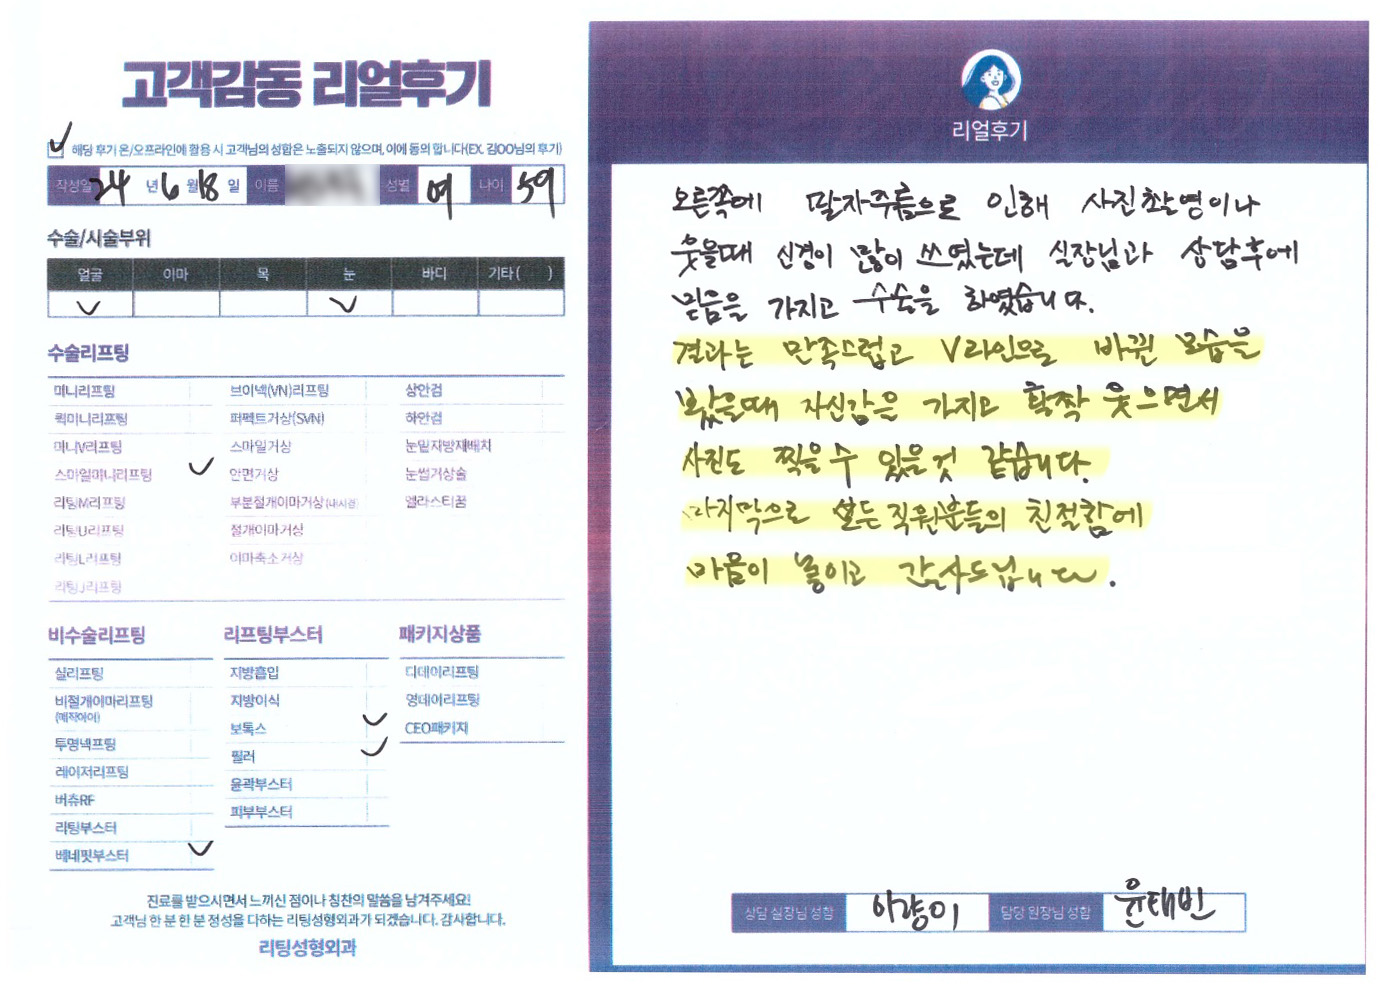 고객감동 리얼후기
해당 후기 온/오프라인에 활용 시 고객님의 성함은 노출되지 않으며, 이에 동의 합니다(EX. 김OO님의 후기)
작성일 24 년 6 월 18 일 이름 성별 여 나이 59
수술/시술부위
얼굴 이마 목 눈 바디 기타 ( )
수술리프팅
미니리프팅 브이넥(VN)리프팅 상안검
퀵미니리프팅 퍼펙트거상(SVN) 하안검
미니V리프팅 스마일거상 눈밑지방재배치
스마일미니리프팅 안면거상 눈썹거상술
리팅M리프팅 부분절개이마거상(내시경) 엘라스티꿈
리팅U리프팅 절개이마거상
리팅L리프팅 이마축소거상
리팅J리프팅
비수술리프팅 리프팅부스터 패키지상품
실리프팅 지방흡입 디데이리프팅
비절개이마리프팅 지방이식 영데이리프팅
(매직아이) 보톡스 CEO패키지
투명넥프팅 필러
레이저리프팅 윤곽부스터
버츄RF 피부부스터
리팅부스터
베네핏부스터
진료를 받으시면서 느끼신 점이나 칭찬의 말씀을 남겨주세요!
고객님 한 분 한 분 정성을 다하는 리팅성형외과가 되겠습니다. 감사합니다.
리팅성형외과
리얼후기
오른쪽에 팔자주름으로 인해 사진촬영이나
웃을때 신경이 많이 쓰였는데 실장님과 상담후에
믿음을 가지고 수술을 하였습니다.
결과는 만족스럽고 V라인으로 바뀐 모습을
봤을때 자신감은 가지고 활짝 웃으면서
사진도 찍을수 있을것 같습니다.
마지막으로 모든직원분들의 친절함에
마음이 놓이고 감사드립니다.
상담 실장님 성함 이랑이 담당 원장님 성함 윤태빈